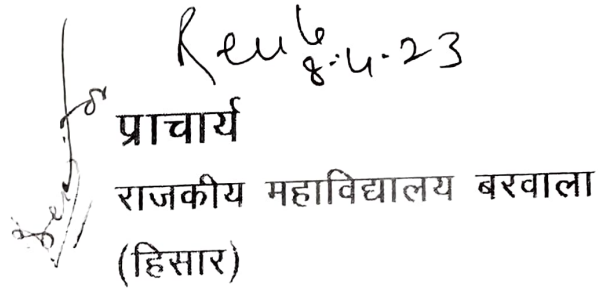 Renu
8.4.23
प्राचार्य
राजकीय महाविद्यालय बरवाला
(हिसार)